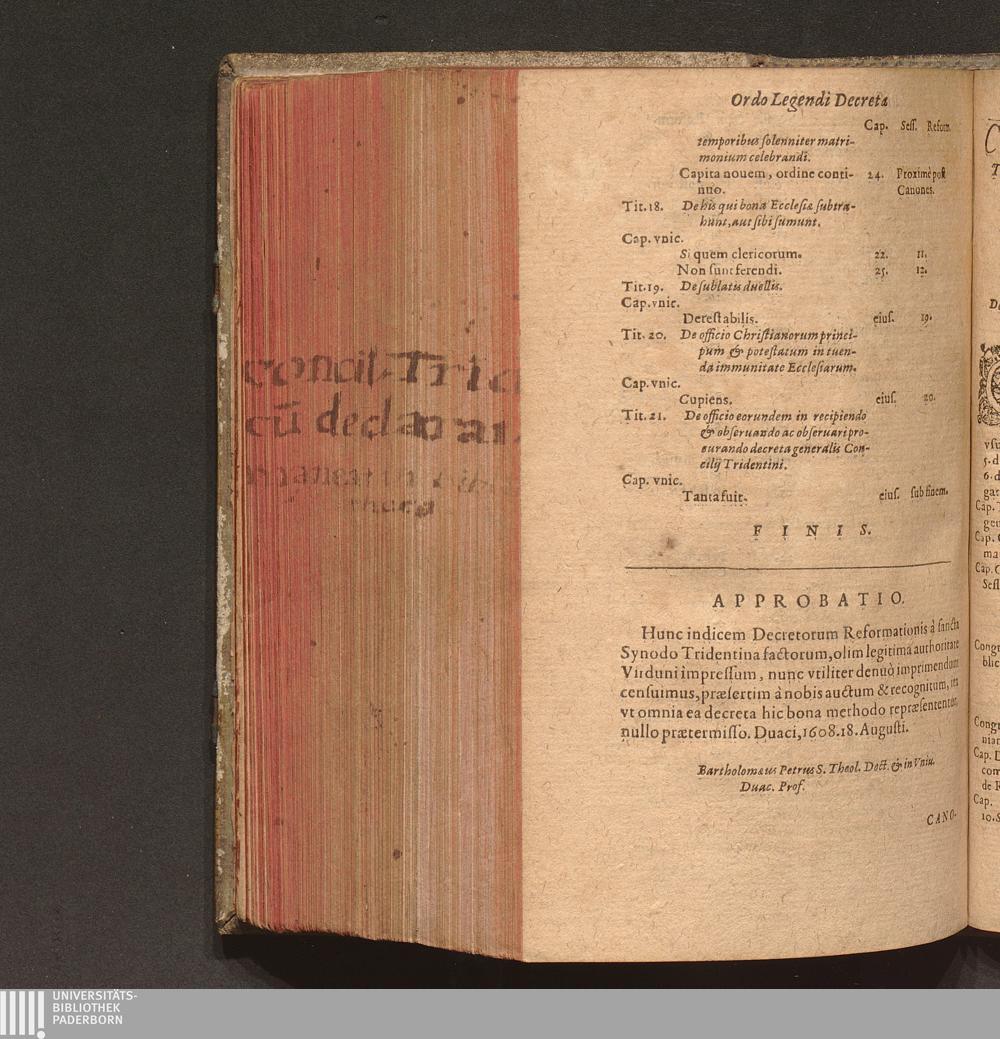 Ordo Legendi Decreta
Cap. Seſſ. Reform.
temporibus ſolenniter matri-
monium celebrandi.
Capita nouem, ordine conti- 24. Proximè poſt
nuo. Canones.
Tit. 18. De his qui bona Eccleſiæ ſubtra-
hunt, aut ſibi ſumunt.
Cap. vnic.
Si quem clericorum. 22. 11.
Non ſunt ferendi. 25. 12.
Tit. 19. De ſublatis duellis.
Cap. vnic.
Deteſtabilis. eiuſ. 19.
Tit. 20. De officio Chriſtianorum princi-
pum & poteſtatum in tuen-
da immunitate Eccleſiarum.
Cap. vnic.
Cupiens. eiuſ. 20.
Tit. 21. De officio eorundem in recipiendo
& obſeruando ac obſeruari pro-
curando decreta generalis Con-
cilij Tridentini.
Cap. vnic.
Tanta fuit. eiuſ. ſub finem.
FINIS.
APPROBATIO.
Hunc indicem Decretorum Reformationis à ſancta
Synodo Tridentina factorum, olim legitima authoritate
Virduni impreſſum, nunc vtiliter denuò imprimendum
cenſuimus, præſertim à nobis auctum & recognitum, ita
vt omnia ea decreta hic bona methodo repræſententur,
nullo prætermiſſo. Duaci, 1608. 18. Auguſti.
Bartholomæus Petrus S. Theol. Doct. & in Vniu.
Duac. Prof.
CANO-
concil. Trid
cū declarat
UNIVERSITÄTS-
BIBLIOTHEK
PADERBORN